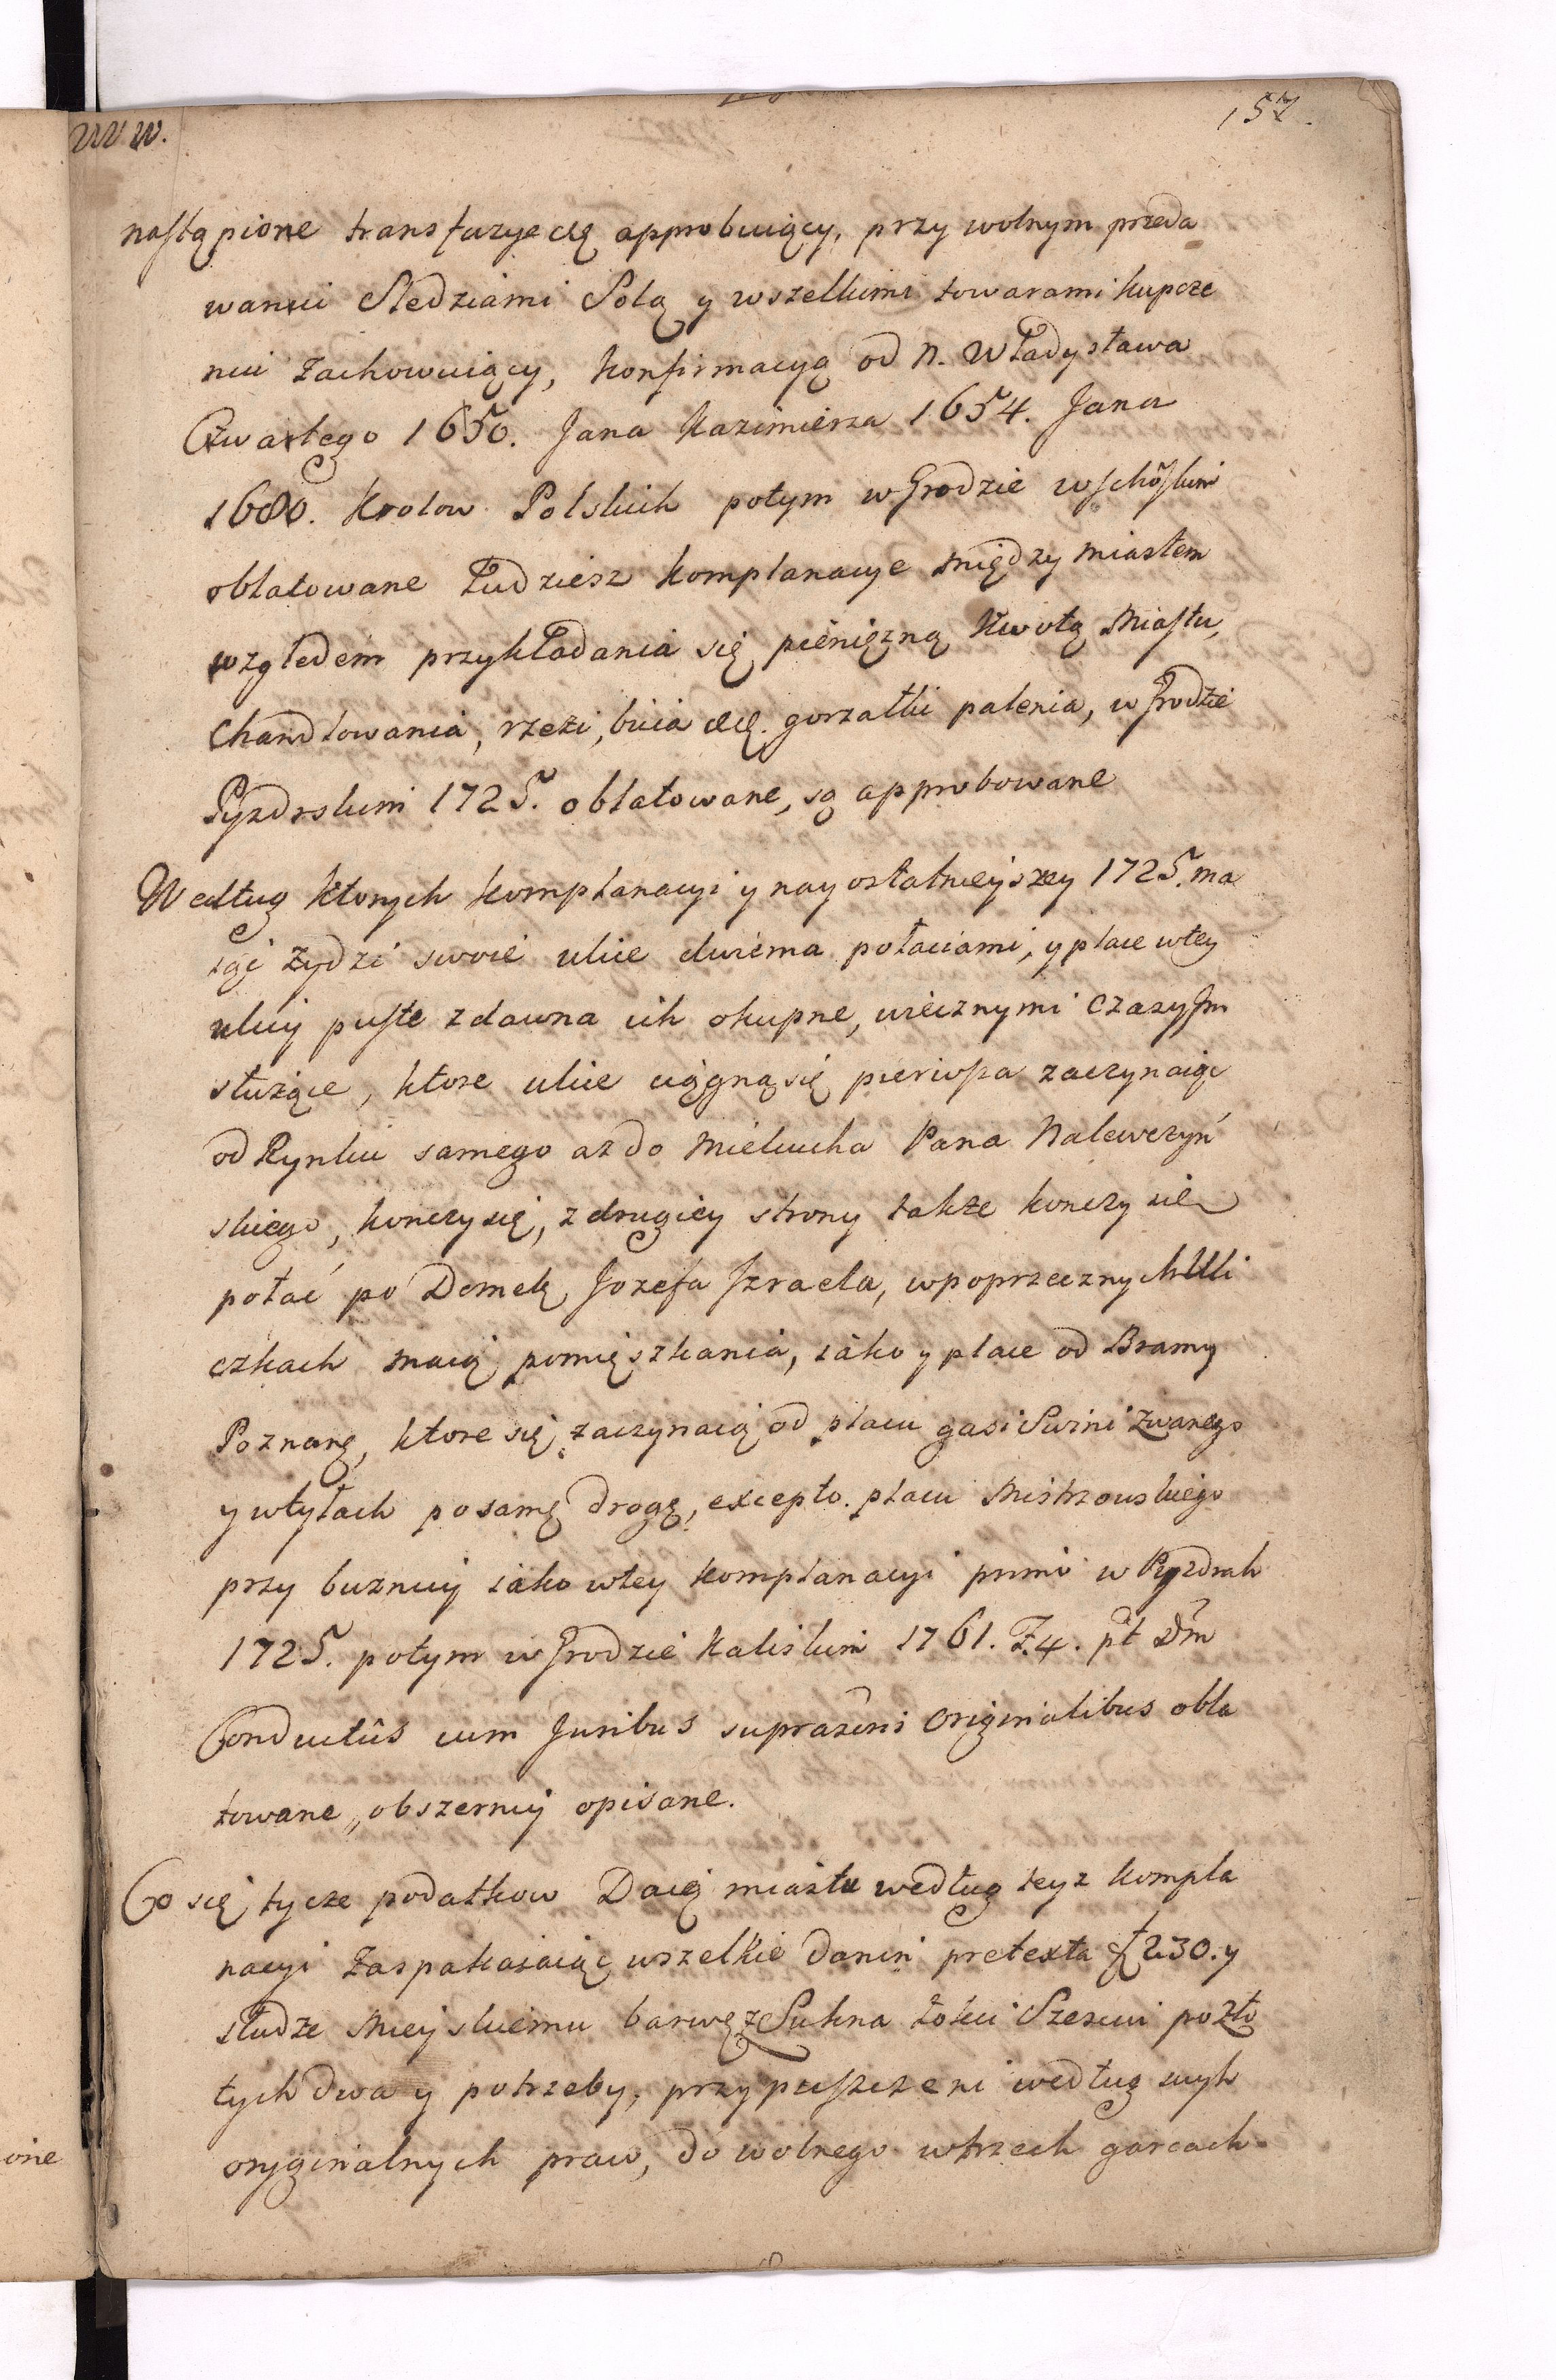 157.
nastąpione transfuzye etc approbuiący, przy wolnym przeda
waniu Sledziami Solą y wszelkimi towarami kupcze
niu zachowuiący, konfirmacyą od N. Władysława
Czwartego 1650. Jana Kazimierza 1654. Jana
1680. Krolow Polskich potym w Grodzie wschōskim
oblatowane Tudziesz komplanacye między miastem
względem przykładania się pienięzną kwotą Miastu,
Chandlowania, rzezi, bicia etc. gorzałki palenia, w Grodzie
Pyzdrskim 1725. oblatowane, są approbowane
Według ktorych komplanacyi y nayostatnieyszey 1725. ma
ią Żydzi swoie ulice dwiema połaciami, y place w tey
ulicy puste zdawna ich okupne, wiecznymi czasy Im
służące, ktore ulice ciągną się pierwsza zaczynaiąc
od Rynku samego az do Mielcucha Pana Nalewczyń
skiego, konczy się, z drugiey strony takze konczy się
połać po Domek Jozefa Izraela, w poprzecznych Uli
czkach maią pomięszkania, iako y place od Bramy
Poznanę, ktore się zaczynaią od placu gasi Swini zwanego
y w tyłach po samę drogę, excepto placu Mistrzowskiego
przy buznicy iako w tey komplanacyi primo w Pyzdrach
1725. potym w Grodzie Kaliskim 1761. F. 4. pt Dm
Conductûs cum Juribus supraẽnis Originalibus obla
towane, obszerniey opisane.
Co się tycze podatkow Daią miastu według teyz kompla
nacyi Zaspakaiaiąc wszelkie danin pretexta f 230. y
słudze Mieyskiemu barwę z Sukna łokci Szesciu po zło
tych dwa y potrzeby, przypuszczeni według swych
oryginalnych praw, do wolnego w trzech garcach